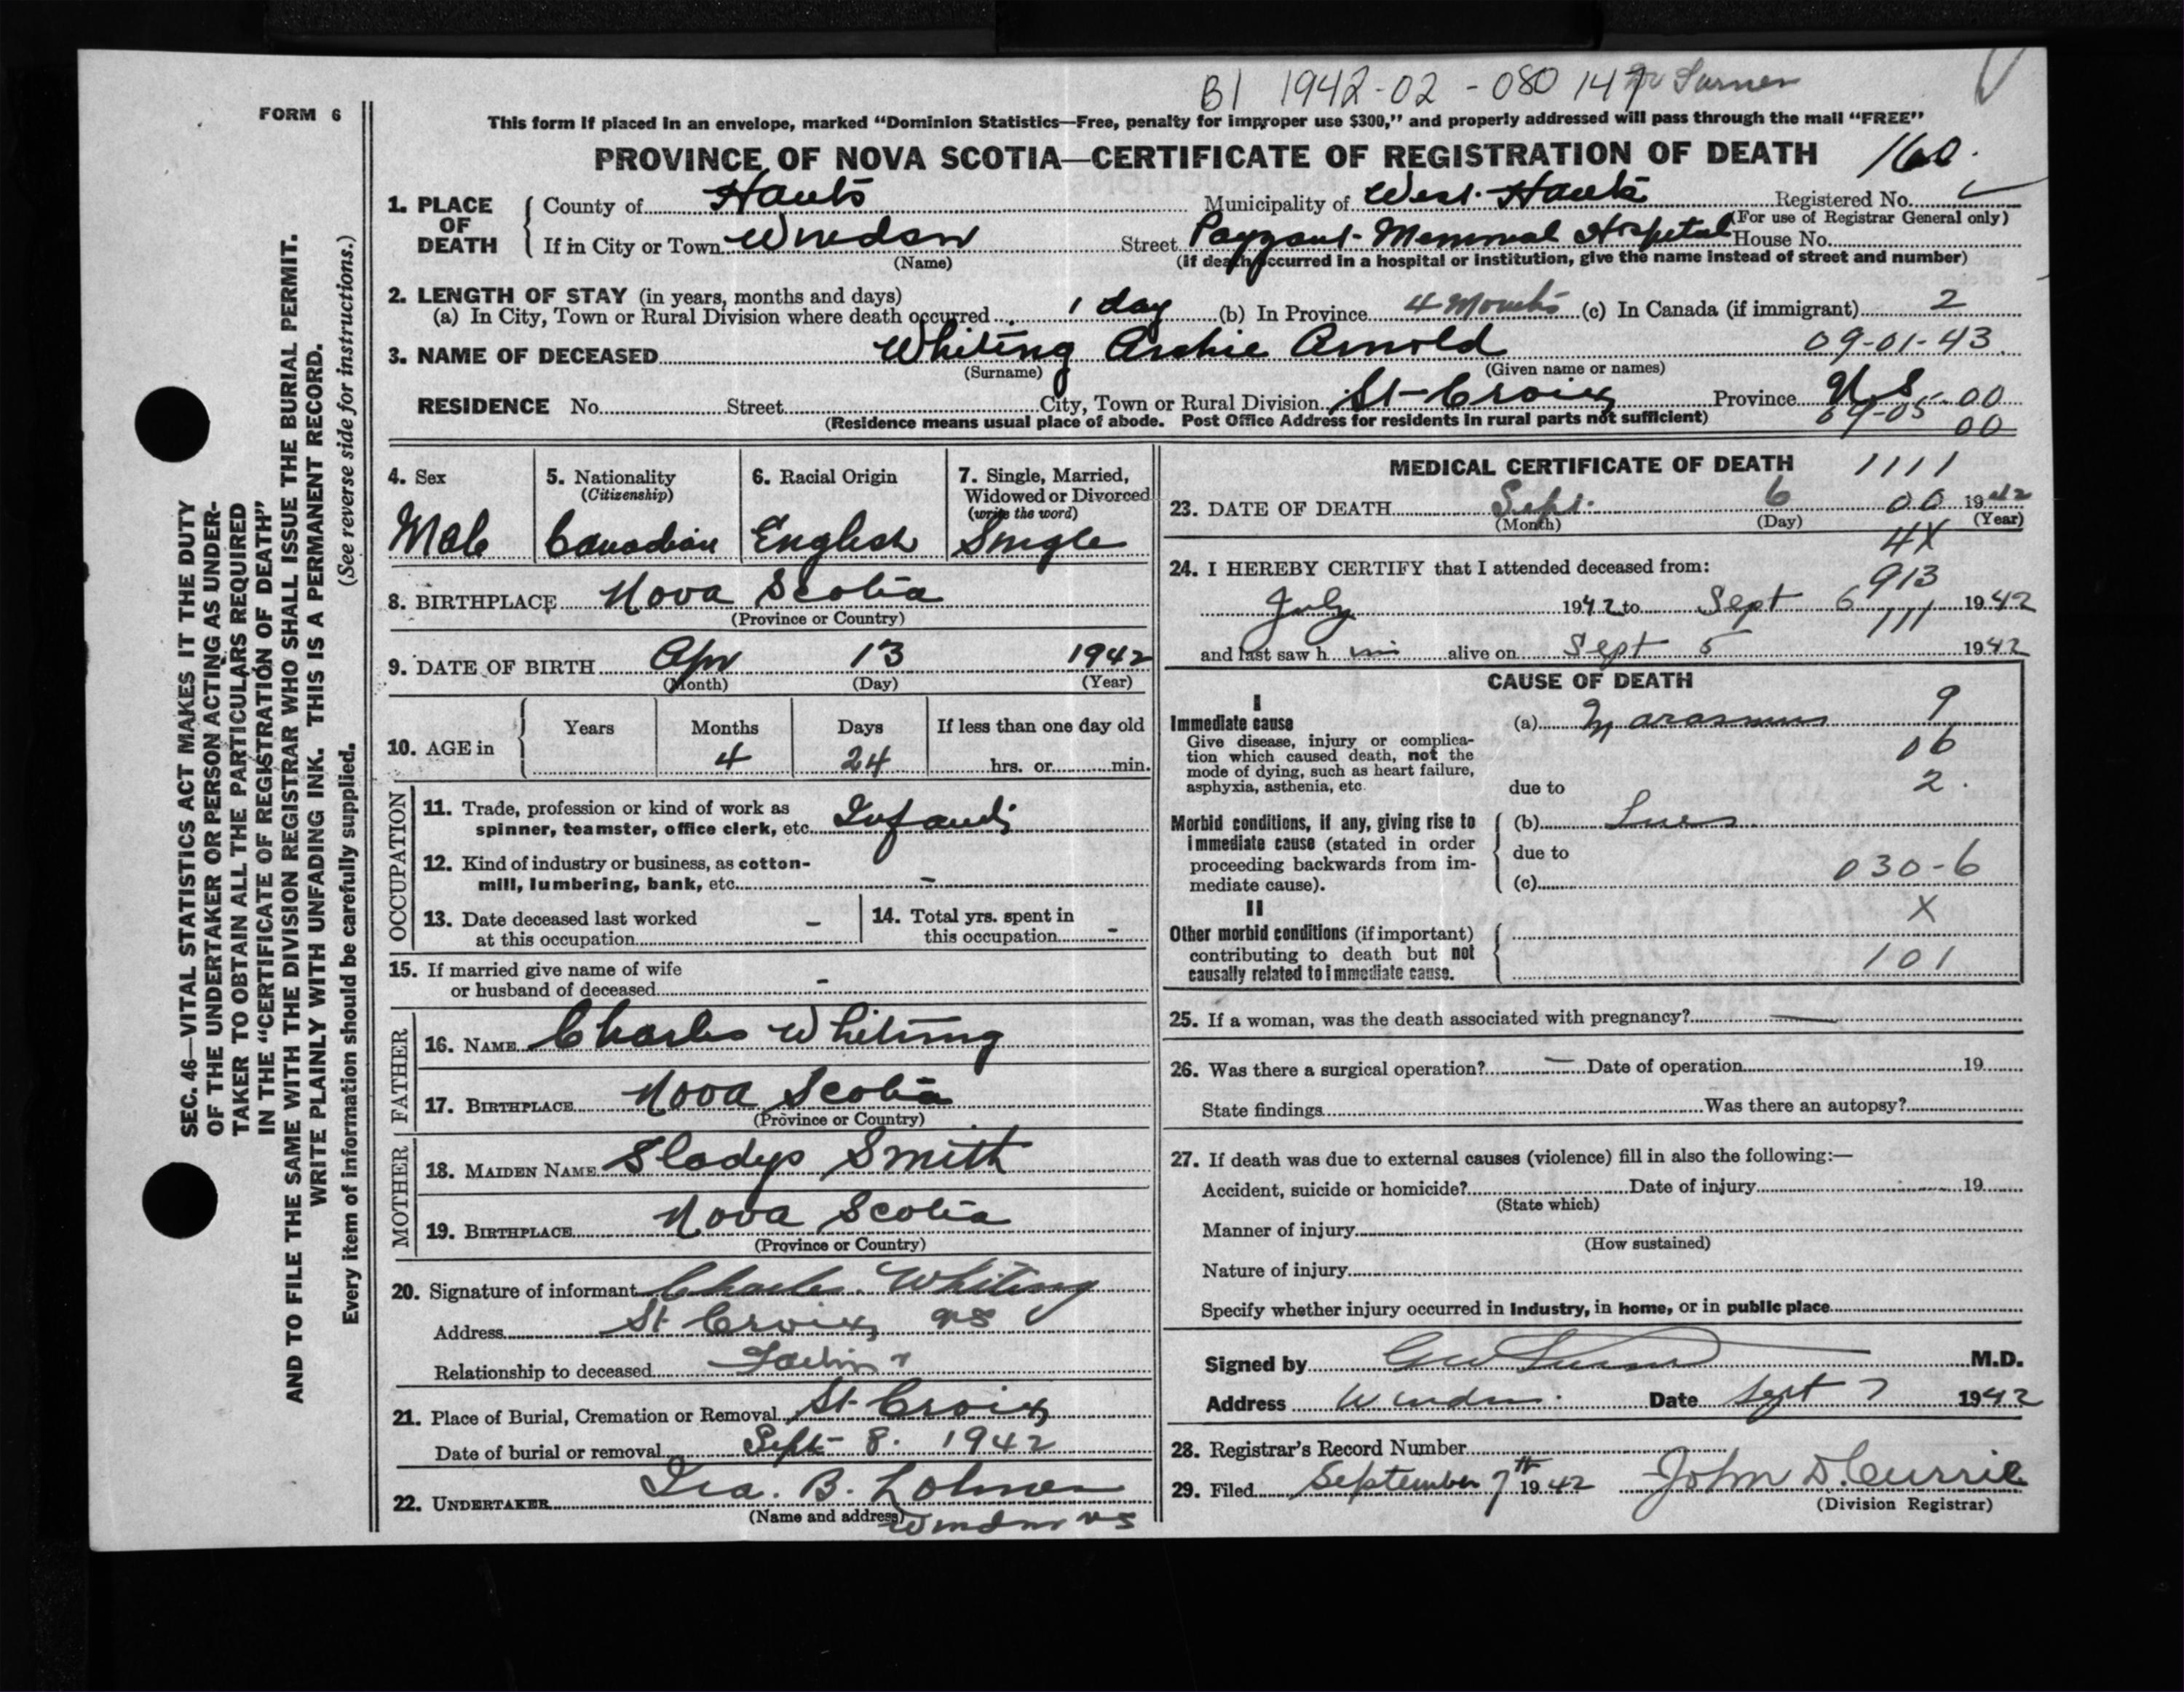 B1 1942-02-080147 Dr Turner
FORM 6
This form if placed in an envelope, marked “Dominion Statistics—Free, penalty for improper use $300,” and properly addressed will pass through the mail “FREE”
PROVINCE OF NOVA SCOTIA—CERTIFICATE OF REGISTRATION OF DEATH 160.
1. PLACE OF DEATH { County of Hants Municipality of West Hants Registered No.
(For use of Registrar General only)
If in City or Town Windsor Street Payzant Memorial Hospital House No.
(Name) (If death occurred in a hospital or institution, give the name instead of street and number)
2. LENGTH OF STAY (in years, months and days)
(a) In City, Town or Rural Division where death occurred 1 day (b) In Province 4 Months (c) In Canada (if immigrant) 2
3. NAME OF DECEASED Whiting Archie Arnold 09-01-43
(Surname) (Given name or names)
RESIDENCE No. Street City, Town or Rural Division St-Croix Province N.S. 00
(Residence means usual place of abode. Post Office Address for residents in rural parts not sufficient) 09-05 00
4. Sex
Male
5. Nationality
(Citizenship)
Canadian
6. Racial Origin
English
7. Single, Married,
Widowed or Divorced
(write the word)
Single
8. BIRTHPLACE Nova Scotia
(Province or Country)
9. DATE OF BIRTH Apr 13 1942
(Month) (Day) (Year)
10. AGE in { Years Months Days If less than one day old
4 24 hrs. or min.
OCCUPATION
11. Trade, profession or kind of work as
spinner, teamster, office clerk, etc. Infant
12. Kind of industry or business, as cotton-
mill, lumbering, bank, etc. -
13. Date deceased last worked
at this occupation -
14. Total yrs. spent in
this occupation -
15. If married give name of wife
or husband of deceased -
FATHER
16. NAME Charles Whiting
17. BIRTHPLACE Nova Scotia
(Province or Country)
MOTHER
18. MAIDEN NAME Gladys Smith
19. BIRTHPLACE Nova Scotia
(Province or Country)
20. Signature of informant Charles Whiting
Address St Croix NS
Relationship to deceased Father
21. Place of Burial, Cremation or Removal St-Croix
Date of burial or removal Sept 8. 1942
22. UNDERTAKER Ira. B. Lohnes
(Name and address) Windsor NS
MEDICAL CERTIFICATE OF DEATH 1111
23. DATE OF DEATH Sept. 6 00 1942
(Month) (Day) (Year)
4X
24. I HEREBY CERTIFY that I attended deceased from:
913
July 1942 to Sept 6 1942
111
and last saw h im alive on Sept 5 1942
CAUSE OF DEATH
I
Immediate cause (a) Marasmus 9
Give disease, injury or complica-
tion which caused death, not the
mode of dying, such as heart failure,
asphyxia, asthenia, etc. due to
06
2.
Morbid conditions, if any, giving rise to
immediate cause (stated in order
proceeding backwards from im-
mediate cause).
(b) Lues
due to
(c) 030-6
II X
Other morbid conditions (if important)
contributing to death but not
causally related to immediate cause. 101
25. If a woman, was the death associated with pregnancy? —
26. Was there a surgical operation? — Date of operation 19
State findings Was there an autopsy?
27. If death was due to external causes (violence) fill in also the following:—
Accident, suicide or homicide? Date of injury 19
(State which)
Manner of injury
(How sustained)
Nature of injury
Specify whether injury occurred in Industry, in home, or in public place
Signed by Turner M.D.
Address Windsor. Date Sept 7 1942
28. Registrar’s Record Number
29. Filed September 7th 1942 John D. Currie
(Division Registrar)
SEC. 46—VITAL STATISTICS ACT MAKES IT THE DUTY
OF THE UNDERTAKER OR PERSON ACTING AS UNDER-
TAKER TO OBTAIN ALL THE PARTICULARS REQUIRED
IN THE “CERTIFICATE OF REGISTRATION OF DEATH”
AND TO FILE THE SAME WITH THE DIVISION REGISTRAR WHO SHALL ISSUE THE BURIAL PERMIT.
WRITE PLAINLY WITH UNFADING INK. THIS IS A PERMANENT RECORD.
Every item of information should be carefully supplied. (See reverse side for instructions.)